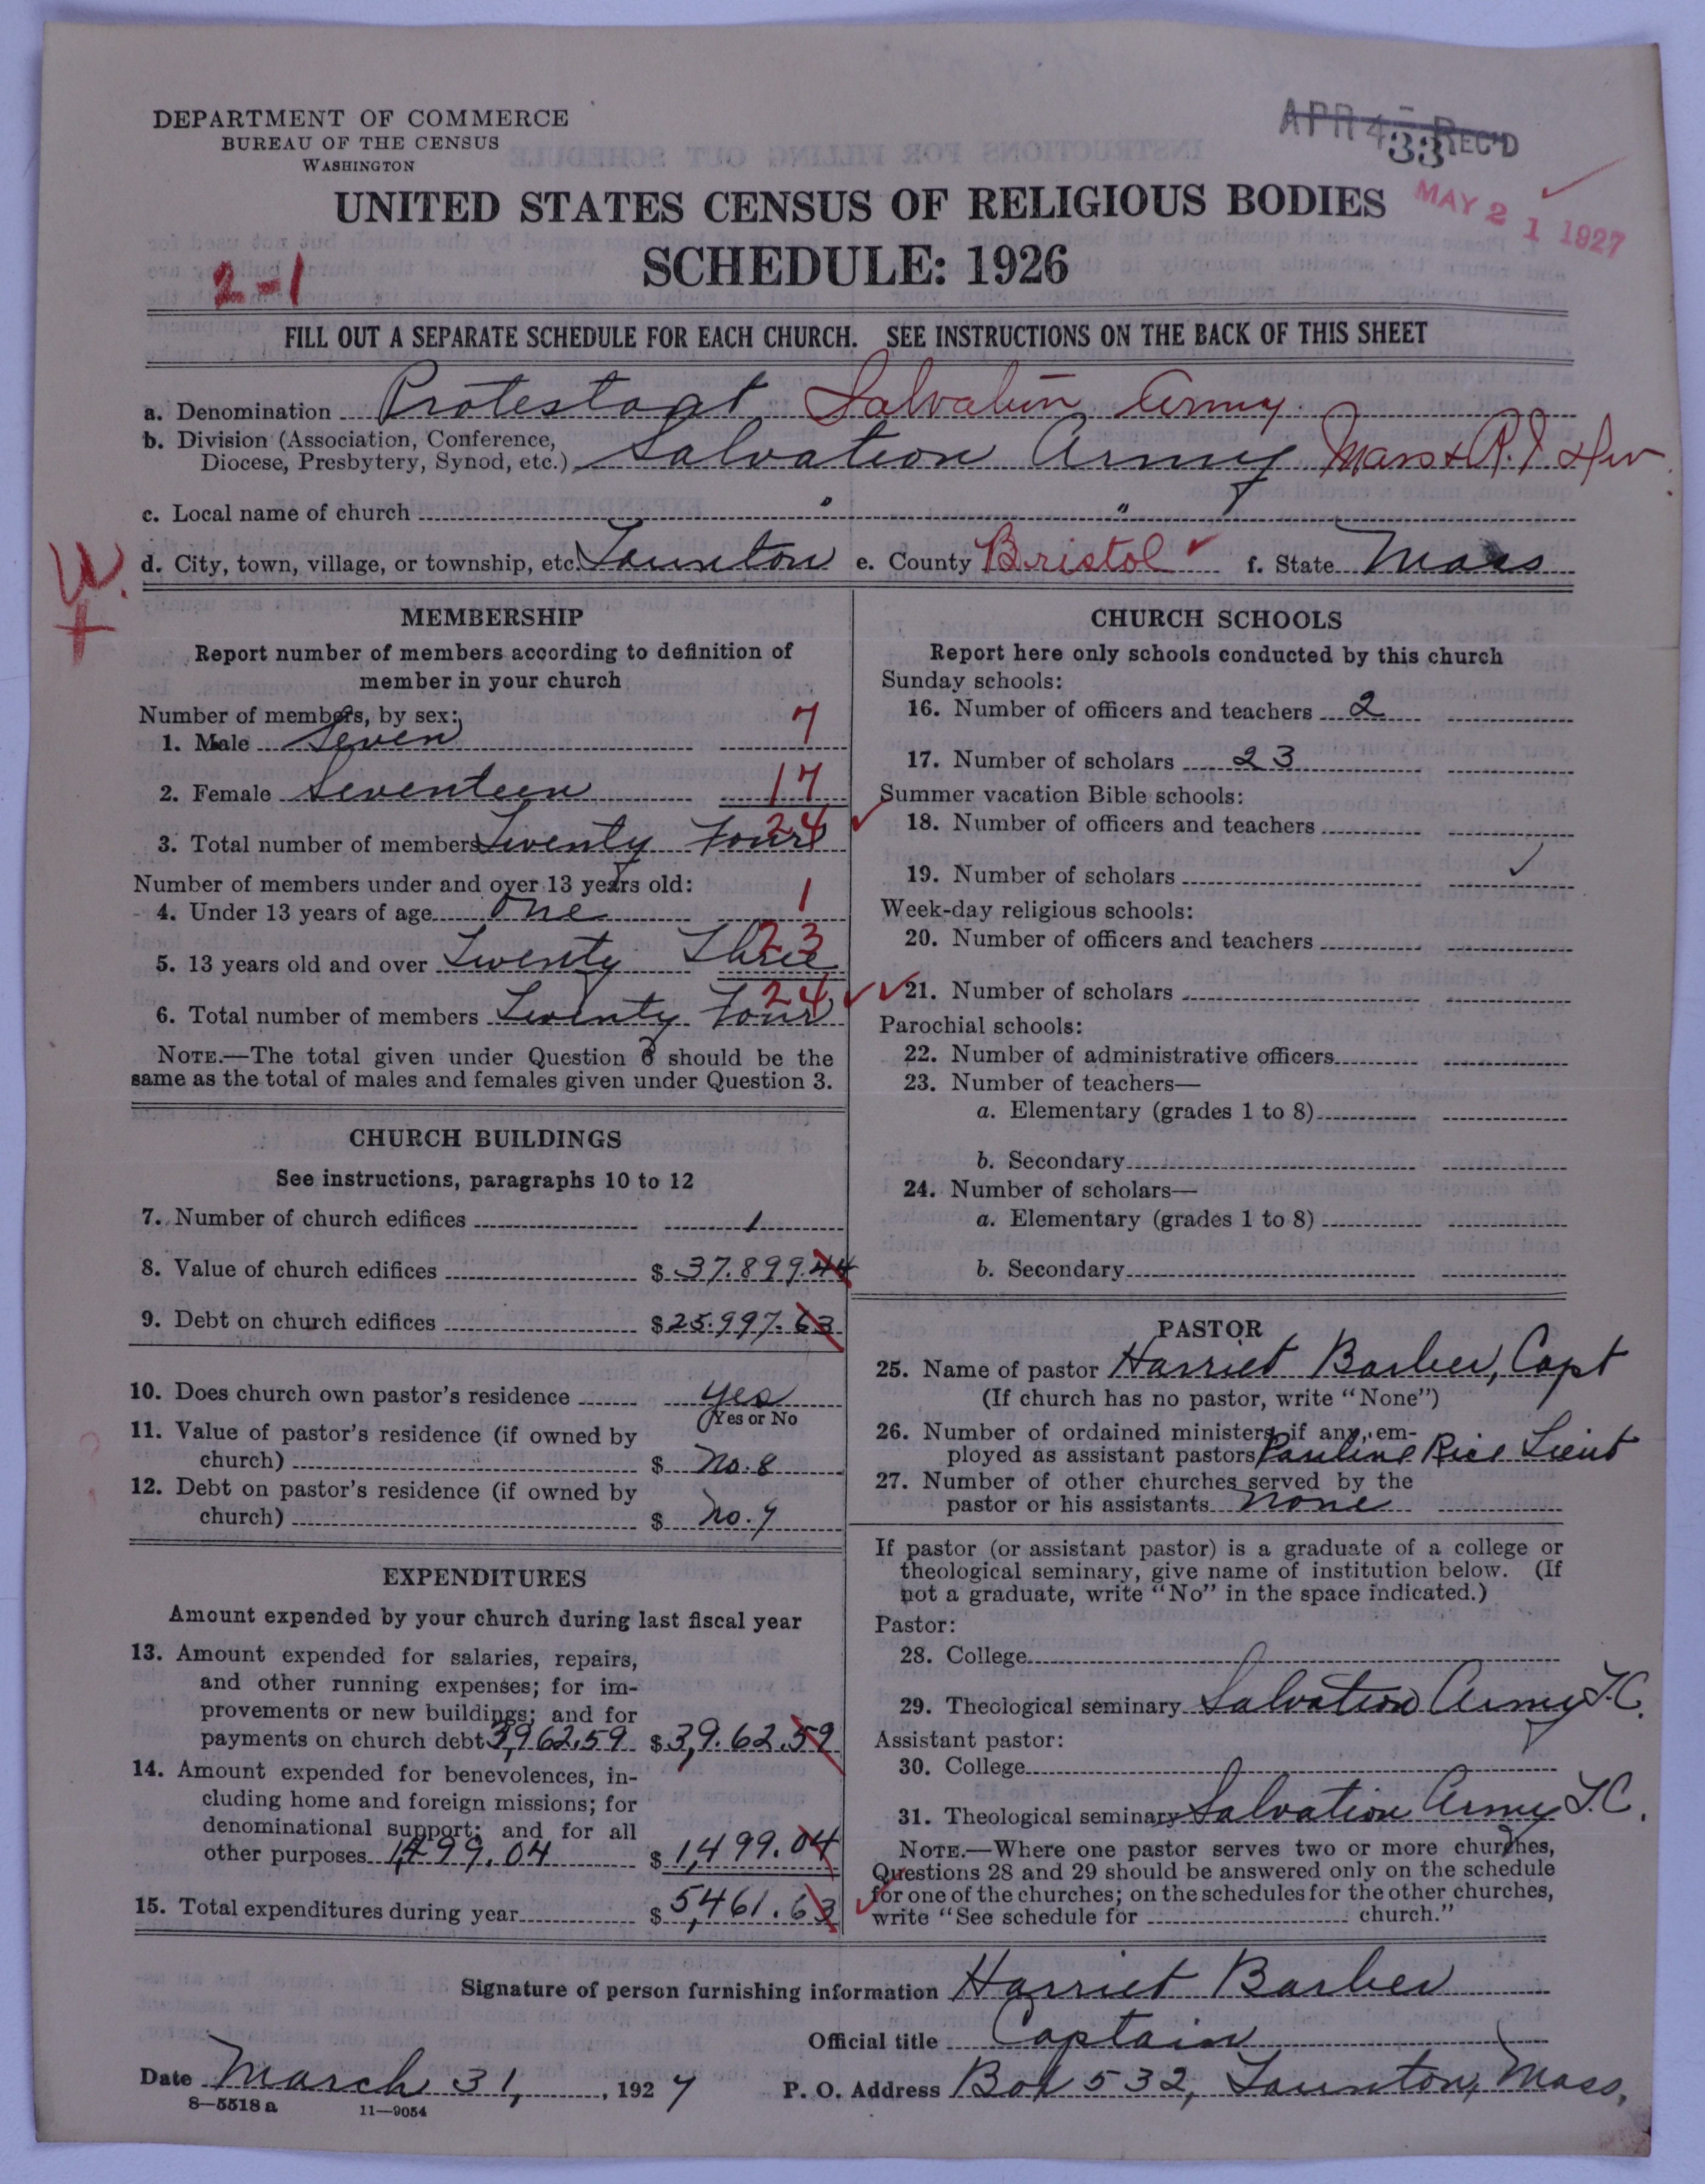 DEPARTMENT OF COMMERCE
BUREAU OF THE CENSUS
WASHINGTON
APR 4 - REC'D
33
UNITED STATES CENSUS OF RELIGIOUS BODIES
MAY 21 1927
SCHEDULE: 1926
2-1
FILL OUT A SEPARATE SCHEDULE FOR EACH CHURCH. SEE INSTRUCTIONS ON THE BACK OF THIS SHEET
a. Denomination Protestant Salvation Army
b. Division (Association, Conference,
Diocese, Presbytery, Synod, etc.) Salvation Army Mass & R.I Div
c. Local name of church " "
d. City, town, village, or township, etc. Taunton e. County Bristol f. State Mass
W.
MEMBERSHIP
Report number of members according to definition of
member in your church
Number of members, by sex:
1. Male Seven 7
2. Female Seventeen 17
3. Total number of members Twenty Four 24
Number of members under and over 13 years old:
4. Under 13 years of age One 1
5. 13 years old and over Twenty Three 23
6. Total number of members Twenty Four 24
NOTE.—The total given under Question 6 should be the
same as the total of males and females given under Question 3.
CHURCH BUILDINGS
See instructions, paragraphs 10 to 12
7. Number of church edifices 1
8. Value of church edifices $ 37.899.44
9. Debt on church edifices $ 25.997.63
10. Does church own pastor's residence yes
(Yes or No
11. Value of pastor's residence (if owned by
church) $ No. 8
12. Debt on pastor's residence (if owned by
church) $ No. 9
EXPENDITURES
Amount expended by your church during last fiscal year
13. Amount expended for salaries, repairs,
and other running expenses; for im-
provements or new buildings; and for
payments on church debt 3,962.59 $ 3,9.62.59
14. Amount expended for benevolences, in-
cluding home and foreign missions; for
denominational support; and for all
other purposes 1,499.04 $ 1,499.04
15. Total expenditures during year $ 5,461.63
CHURCH SCHOOLS
Report here only schools conducted by this church
Sunday schools:
16. Number of officers and teachers 2
17. Number of scholars 23
Summer vacation Bible schools:
18. Number of officers and teachers
19. Number of scholars
Week-day religious schools:
20. Number of officers and teachers
21. Number of scholars
Parochial schools:
22. Number of administrative officers
23. Number of teachers—
a. Elementary (grades 1 to 8)
b. Secondary
24. Number of scholars—
a. Elementary (grades 1 to 8)
b. Secondary
PASTOR
25. Name of pastor Harriet Barber, Capt
(If church has no pastor, write "None")
26. Number of ordained ministers, if any, em-
ployed as assistant pastors Pauline Rice Lieut
27. Number of other churches served by the
pastor or his assistants none
If pastor (or assistant pastor) is a graduate of a college or
theological seminary, give name of institution below. (If
not a graduate, write "No" in the space indicated.)
Pastor:
28. College
29. Theological seminary Salvation Army T.C.
Assistant pastor:
30. College
31. Theological seminary Salvation Army T.C.
NOTE.—Where one pastor serves two or more churches,
Questions 28 and 29 should be answered only on the schedule
for one of the churches; on the schedules for the other churches,
write "See schedule for church."
Signature of person furnishing information Harriet Barber
Official title Captain
Date March 31, 1927 P. O. Address Box 532, Taunton, Mass,
8—5518 a 11—9054